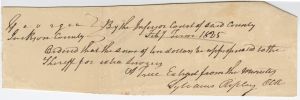 Georgia } By the Inferior Court of said County
Jackson County } Feby Term 1825
Ordered that the sum of ten dollars be appropriated to the
Sheriff for extra services
A true Extract from the minutes
Sylvanus Ripley Clk